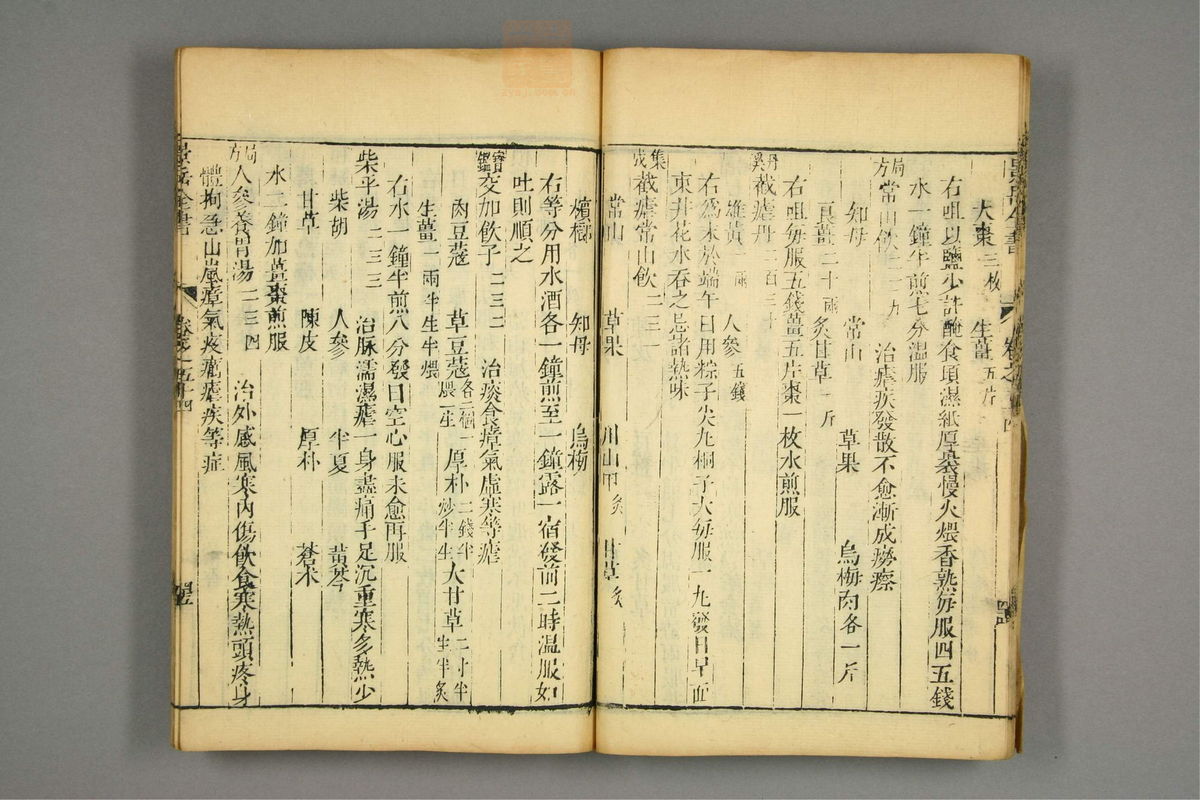 大棗三枚 生薑五片
右咀以鹽少許醃食頃濕紙厚裹慢火煨香熟每服四五錢
水一鐘半煎七分溫服
局方常山飲二二九 治瘧疾發散不愈漸成癆瘵
知母 常山 草果 烏梅肉各一斤
良薑二十兩 炙甘草一斤
右咀每服五錢薑五片棗一枚水煎服
截瘧丹二百三十
雄黃一兩 人參五錢
右為末於端午日用粽子尖丸桐子大每服一丸發日早面
東井花水吞之忌諸熱味
集成截瘧常山飲二三一
常山 草果 川山甲炙 甘草炙
檳榔 知母 烏梅
右等分用水酒各一鐘煎至一鐘露一宿發前二時溫服如
吐則順之
寶鑑交加飲子二三二 治痰食瘴氣虛寒等瘧
肉豆蔻 草豆蔻各二個一生一煨 厚朴二錢半半生半炒 大甘草二寸半半生半炙
生薑一兩半生半煨
右水一鐘半煎八分發日空心服未愈再服
柴平湯二三三 治脉濡濕瘧一身盡痛手足沉重寒多熱少
柴胡 人參 半夏 黃芩
甘草 陳皮 厚朴 蒼术
水二鐘加薑棗煎服
局方人參養胃湯二三四 治外感風寒內傷飲食寒熱頭疼身
體拘急山嵐瘴氣疫癘瘧疾等症
景岳全書 卷之五十四